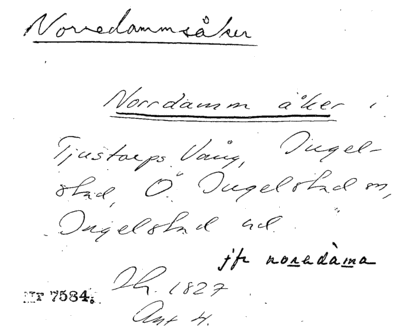 Norredammsåker
Norrdamm åker i
Tjustorps Vång, Ingel-
stad, Ö. Ingelstad sn,
Ingelstad hd.
jfr noredàma
Ih. 1827
Ant 4.
NF 7584.